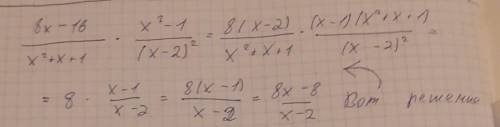 (8x-16)/(x²+x+1) · (x³-1)/(x-2)² = 8(x-2)/(x²+x+1) · (x-1)(x²+x+1)/(x-2)² =
= 8 · (x-1)/(x-2) = 8(x-1)/(x-2) = (8x-8)/(x-2) Вот решение